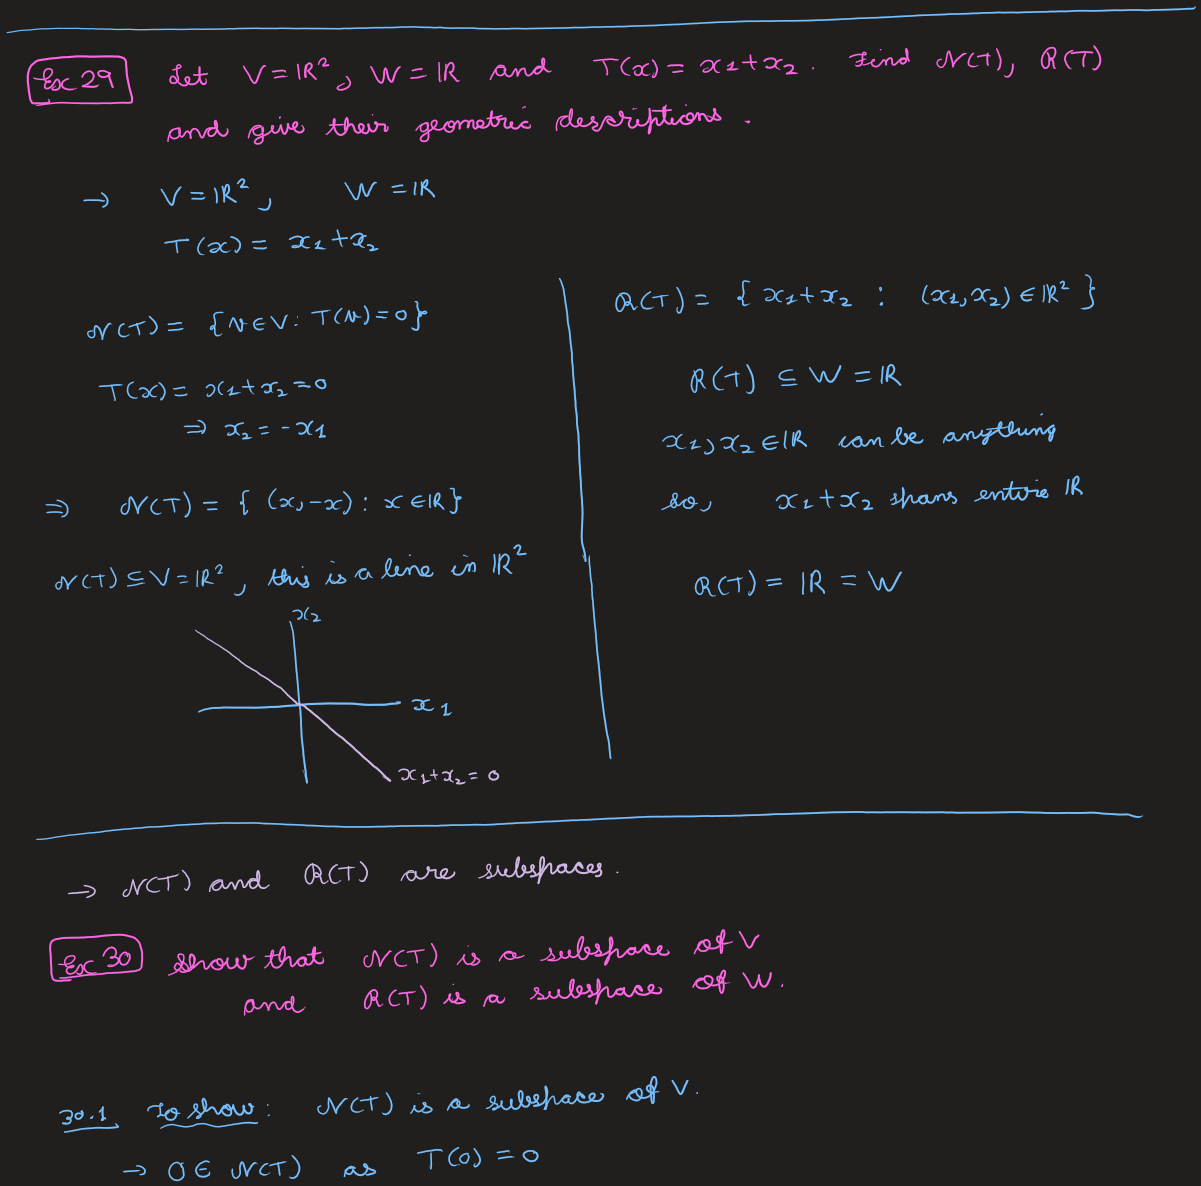 Ex 29 Let V = ℝ², W = ℝ and T(x) = x₁+x₂. Find N(T), R(T)
and give their geometric descriptions.
→ V = ℝ², W = ℝ
T(x) = x₁+x₂
N(T) = {v ∈ V : T(v) = 0}
T(x) = x₁+x₂ = 0
⇒ x₂ = -x₁
⇒ N(T) = { (x, -x) : x ∈ ℝ}
N(T) ⊆ V = ℝ², this is a line in ℝ²
x₂
x₁
x₁+x₂ = 0
R(T) = { x₁+x₂ : (x₁,x₂) ∈ ℝ² }
R(T) ⊆ W = ℝ
x₁, x₂ ∈ ℝ can be anything
so, x₁+x₂ spans entire ℝ
R(T) = ℝ = W
→ N(T) and R(T) are subspaces.
Ex 30 Show that N(T) is a subspace of V
and R(T) is a subspace of W.
30.1 To show: N(T) is a subspace of V.
→ 0 ∈ N(T) as T(0) = 0